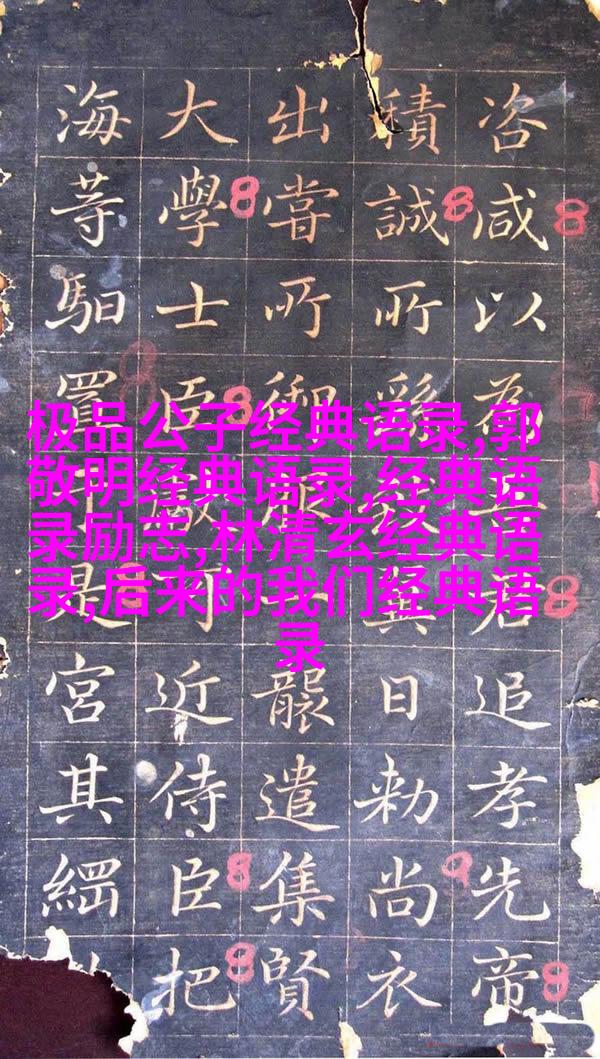 极品公子经典语录,郭
敬明经典语录,经典语
录励志,林清玄经典语
录,后来的我们经典语
录
咨咸以為君追孝先帝
積誠所發異日勑尚衣
出嘗所御服襲遣集賢
大學士臣近侍臣把
海䓁馹置是宮其綱